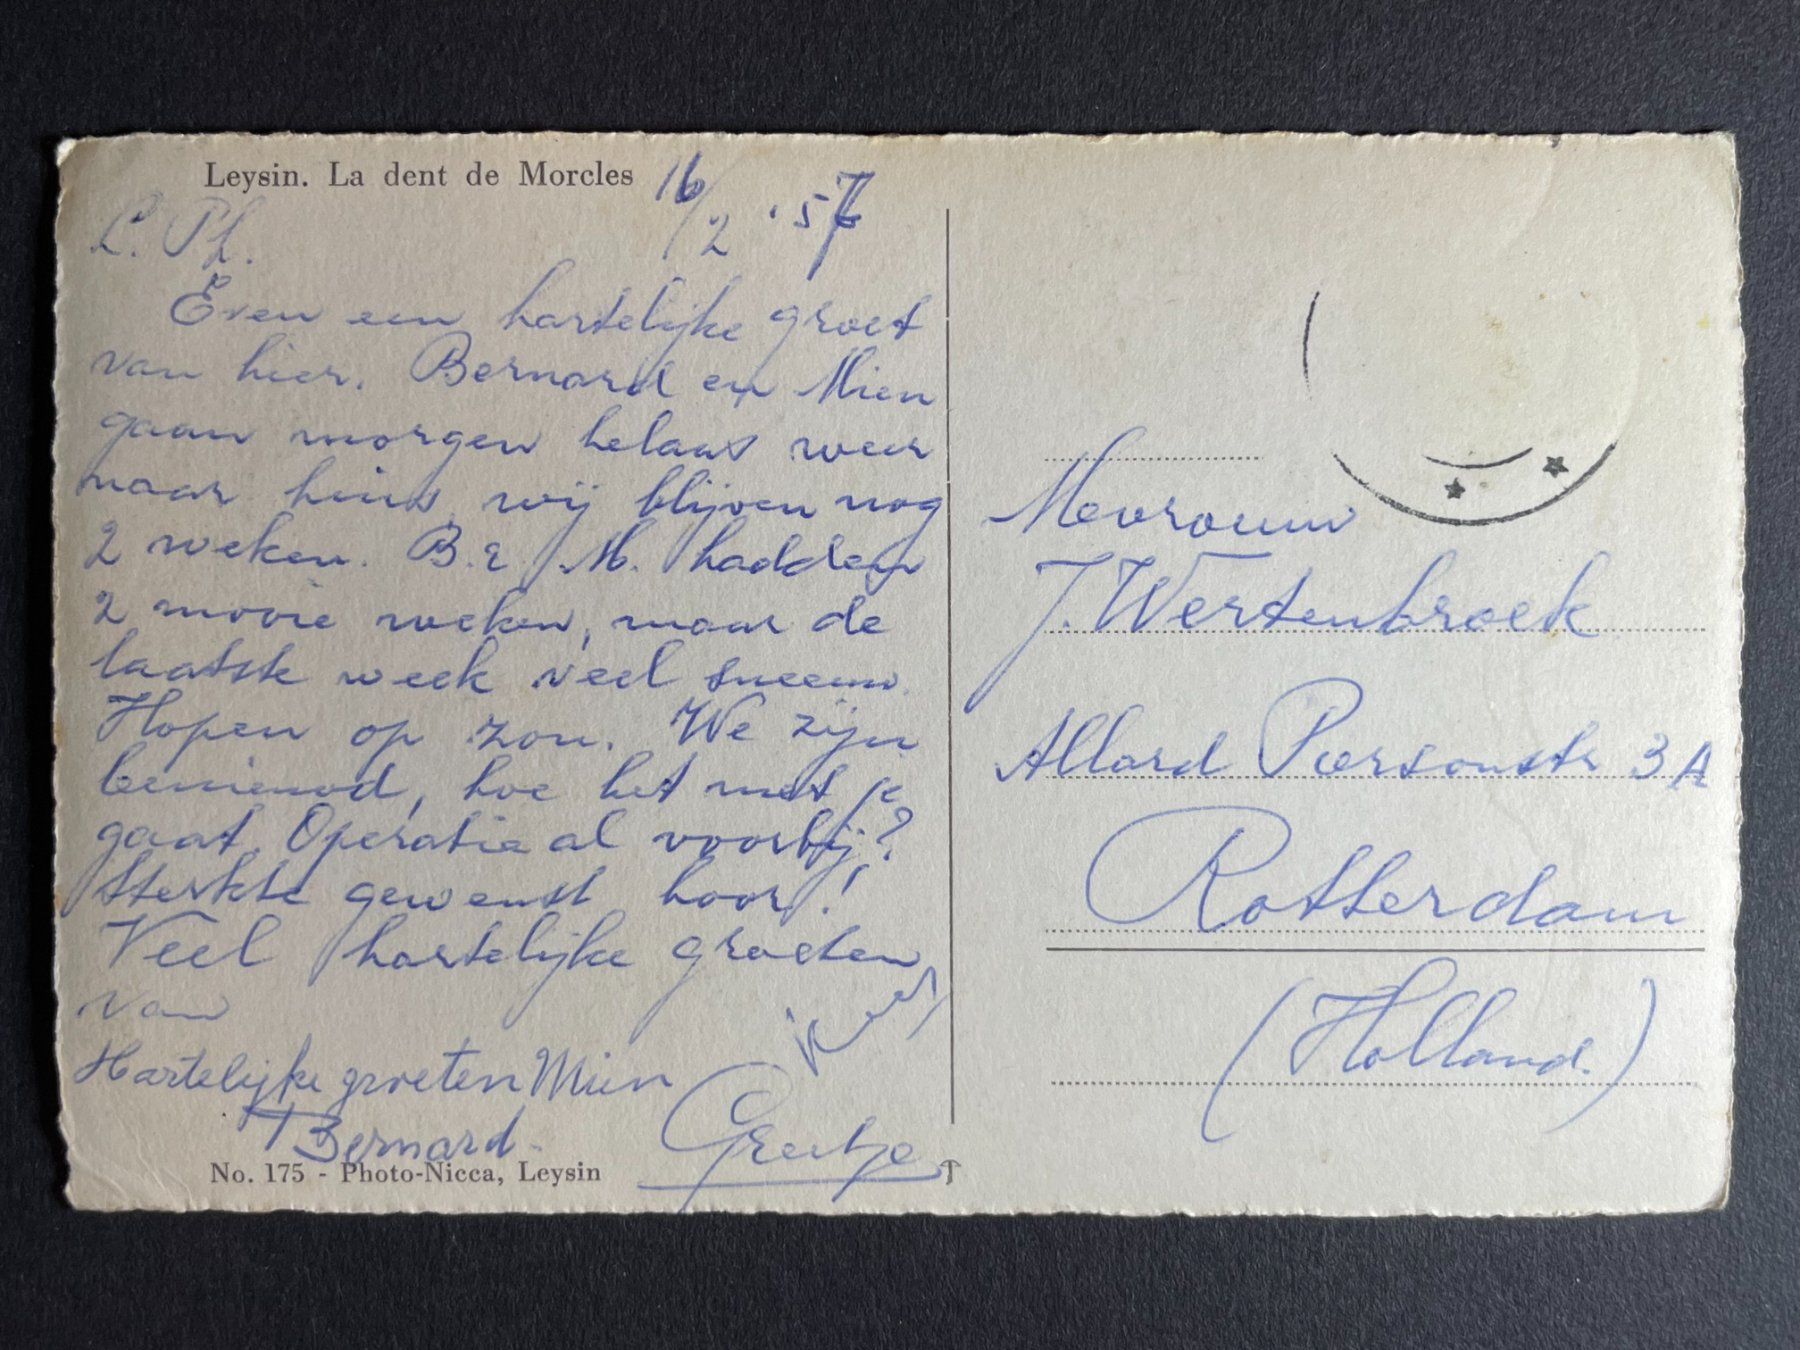 Leysin. La dent de Morcles
16/2 '57
L. Pl.
Even een hartelijke groet
van hier. Bernard en Mien
gaan morgen helaas weer
naar huis, wij blijven nog
2 weken. B. E. M. hadden
2 mooie weken, maar de
laatste week veel sneeuw.
Hopen op zon. We zijn
benieuwd, hoe het met je
gaat. Operatie al voorbij?
Sterkte gewenst hoor!
Veel hartelijke groeten
van
Hartelijke groeten Mien
Bernard.
Greetje
No. 175 - Photo-Nicca, Leysin
Mevrouw
J. Wertenbroek
Allard Piersonstr 3A
Rotterdam
(Holland.)